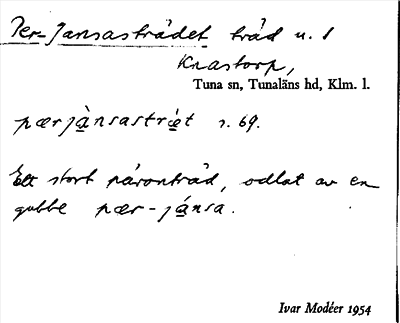 Per-Jansasträdet träd n. 1
Knastorp,
Tuna sn, Tunaläns hd, Klm. l.
pærjànsastrét s. 69.
Ett stort päronträd, odlat av en
gubbe pær-jánsa.
Ivar Modéer 1954